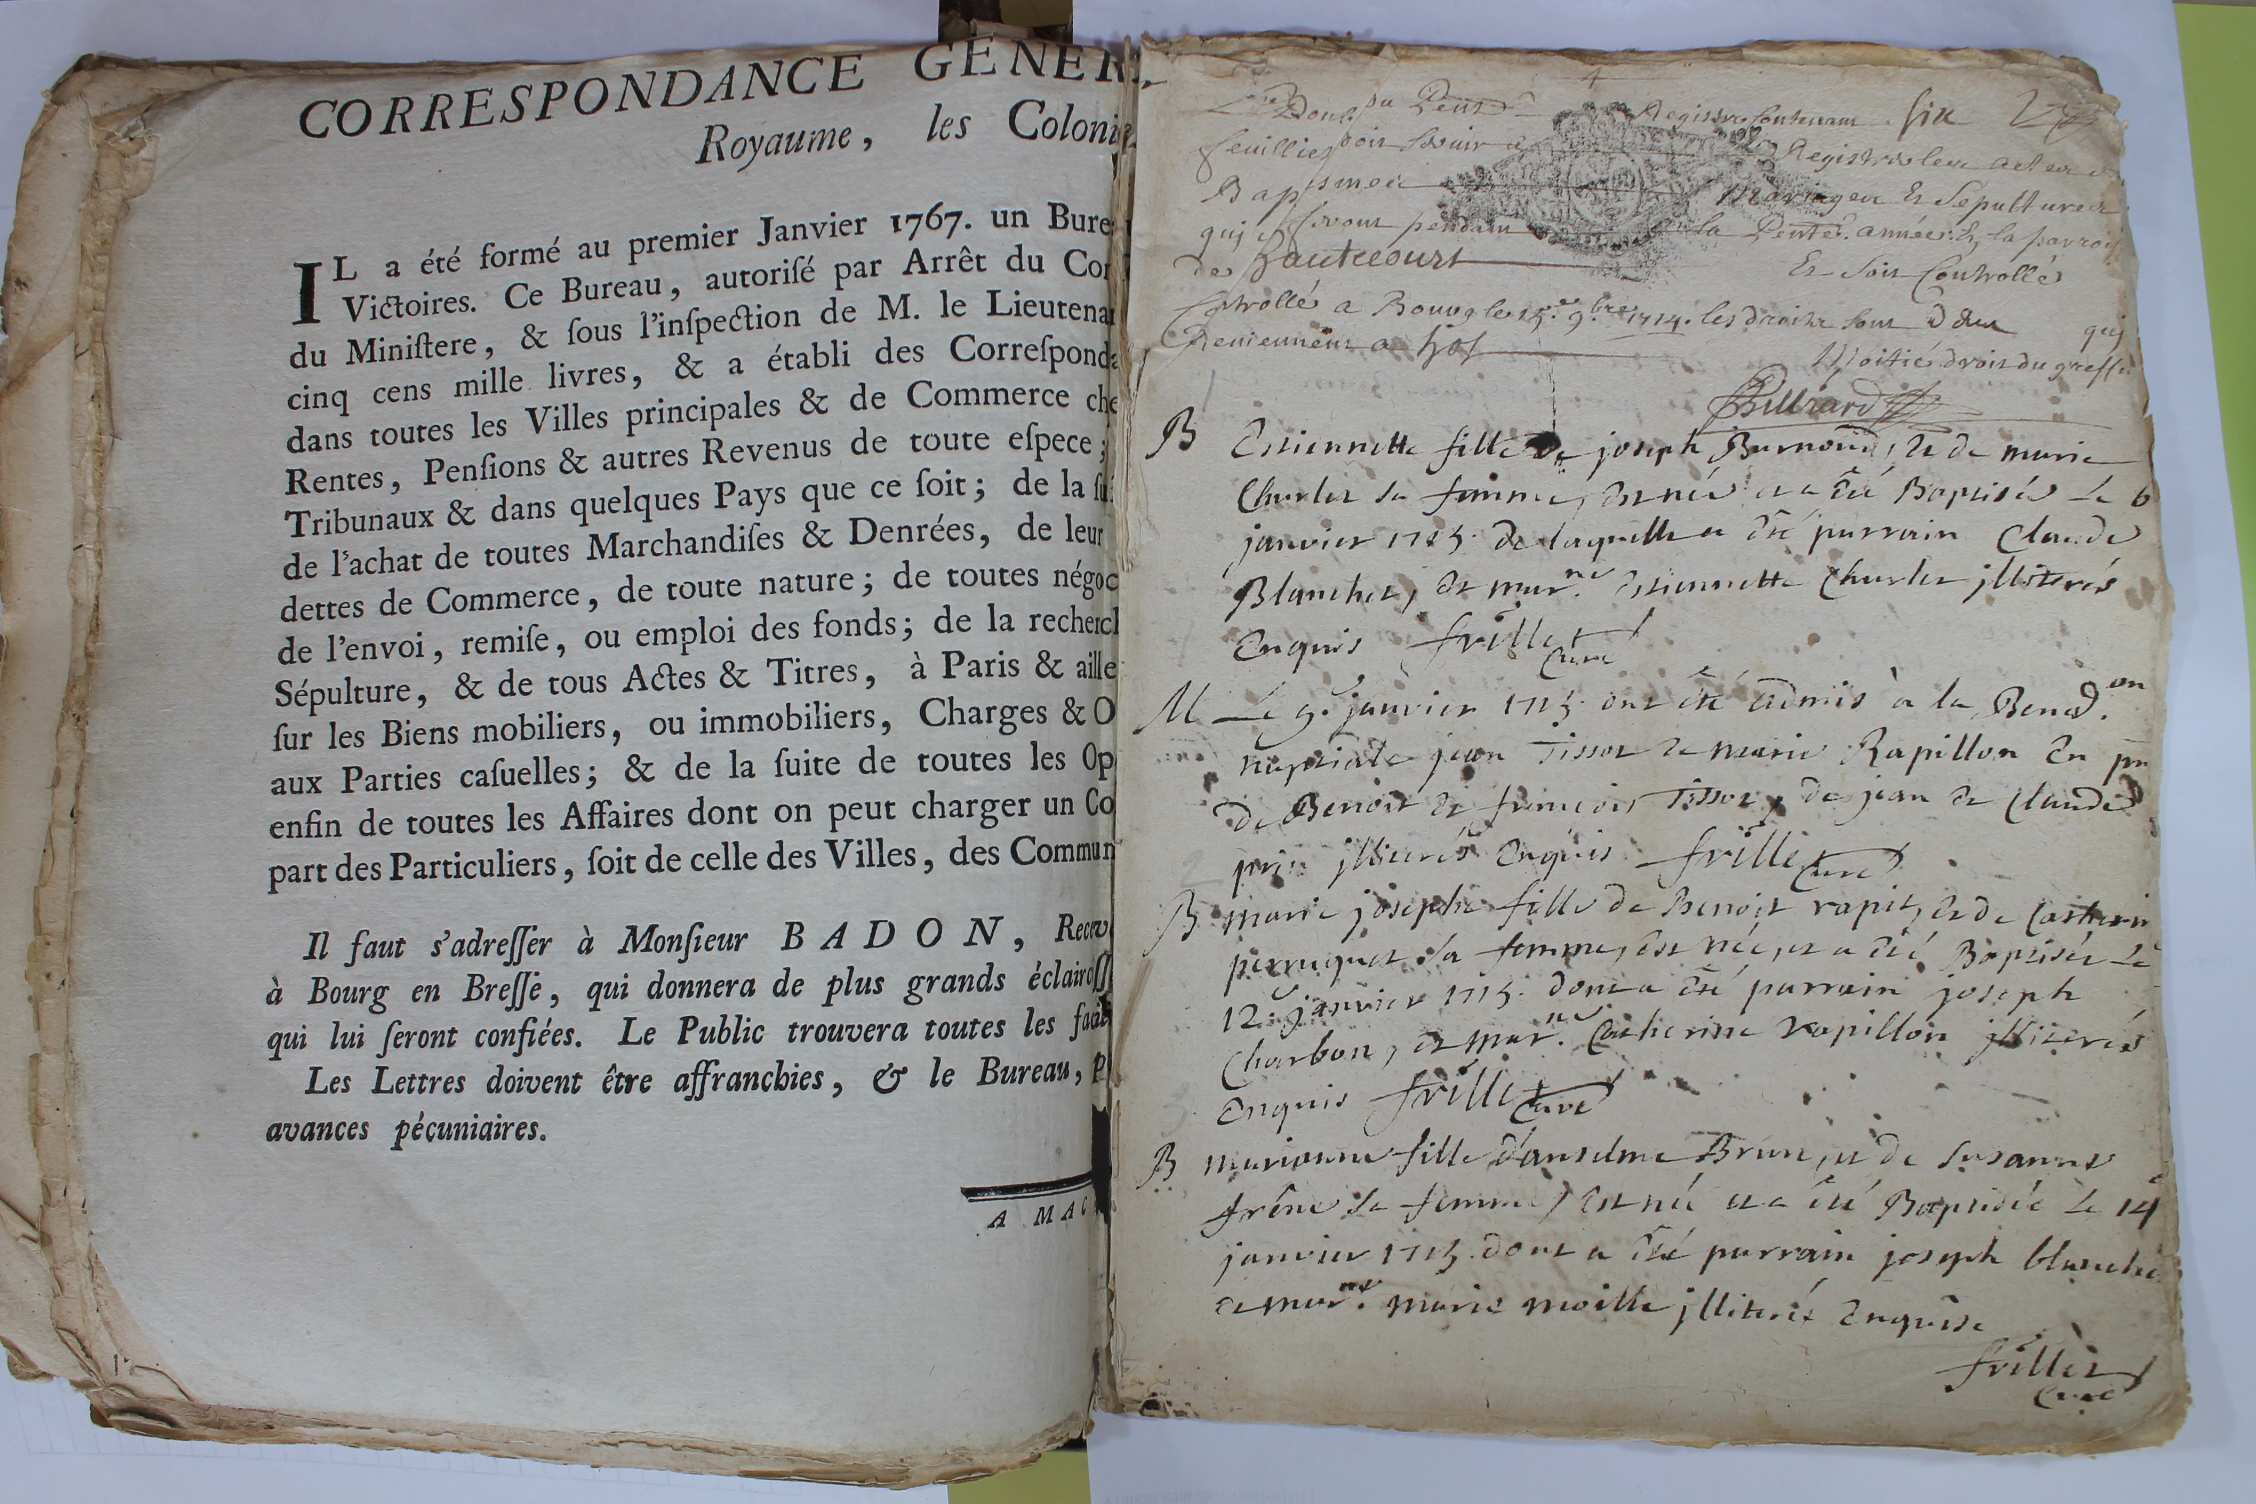 CORRESPONDANCE GENER
Royaume, les Coloni
IL a été formé au premier Janvier 1767. un Bure
Victoires. Ce Bureau, autoriſé par Arrêt du Con
du Miniſtere, & ſous l'inſpection de M. le Lieutenan
cinq cens mille livres, & a établi des Correſponda
dans toutes les Villes principales & de Commerce che
Rentes, Penſions & autres Revenus de toute eſpece;
Tribunaux & dans quelques Pays que ce ſoit; de la ſui
de l'achat de toutes Marchandiſes & Denrées, de leur
dettes de Commerce, de toute nature; de toutes négoc
de l'envoi, remiſe, ou emploi des fonds; de la recherch
Sépulture, & de tous Actes & Titres, à Paris & aille
ſur les Biens mobiliers, ou immobiliers, Charges & O
aux Parties caſuelles; & de la ſuite de toutes les Op
enfin de toutes les Affaires dont on peut charger un Co
part des Particuliers, ſoit de celle des Villes, des Commun
Il faut s'adreſſer à Monſieur BADON, Recev
à Bourg en Breſſe, qui donnera de plus grands éclairciſſ
qui lui ſeront confiées. Le Public trouvera toutes les facili
Les Lettres doivent être affranchies, & le Bureau, p
avances pécuniaires.
A MAC
Registre contenant six
feuillies pour servir a Registrer les actes d
Baptsmes Mariages Et Sepultures
quj se feront pendant la pnte année En la parroiss
de hautecourt Et soit Controllée
Controllé a Bourg le 15e 9bre 1714. les droits sont quj
Reviennent a Moitié droit du greffe
Billiard
B Estiennette fille de joseph Burnoud, et de marie
Charlet sa femme, est née et a été Baptisée le 6
janvier 1715. de laquelle a été parrain Claude
Blanchet, et mar.ne estiennette Charlet jlliterés
Enquis frillet Curé
M Le 9e janvier 1715. ont été admis à la Bened.on
nuptiale jean Tissot et marie Rapillon En pnce
de Benoit et francois Tissot, de jean et Claude
jlliterés Enquis frillet Curé
B marie josephe fille de Benoit rapit, et de Catherin
perruquet sa femme, est née, et a été Baptisée le
12e janvier 1715. dont a été parrain joseph
Charbon, et mar.ne Catherine rapillon jlliterés
Enquis frillet Curé
B marianne fille d'anselme Brun, et de susanne
frêne sa femme, est née et a été Baptisée le 14e
janvier 1715. dont a été parrain joseph blanchet
et mar.ne marie moille jlliterés Enquise
frillet
Curé